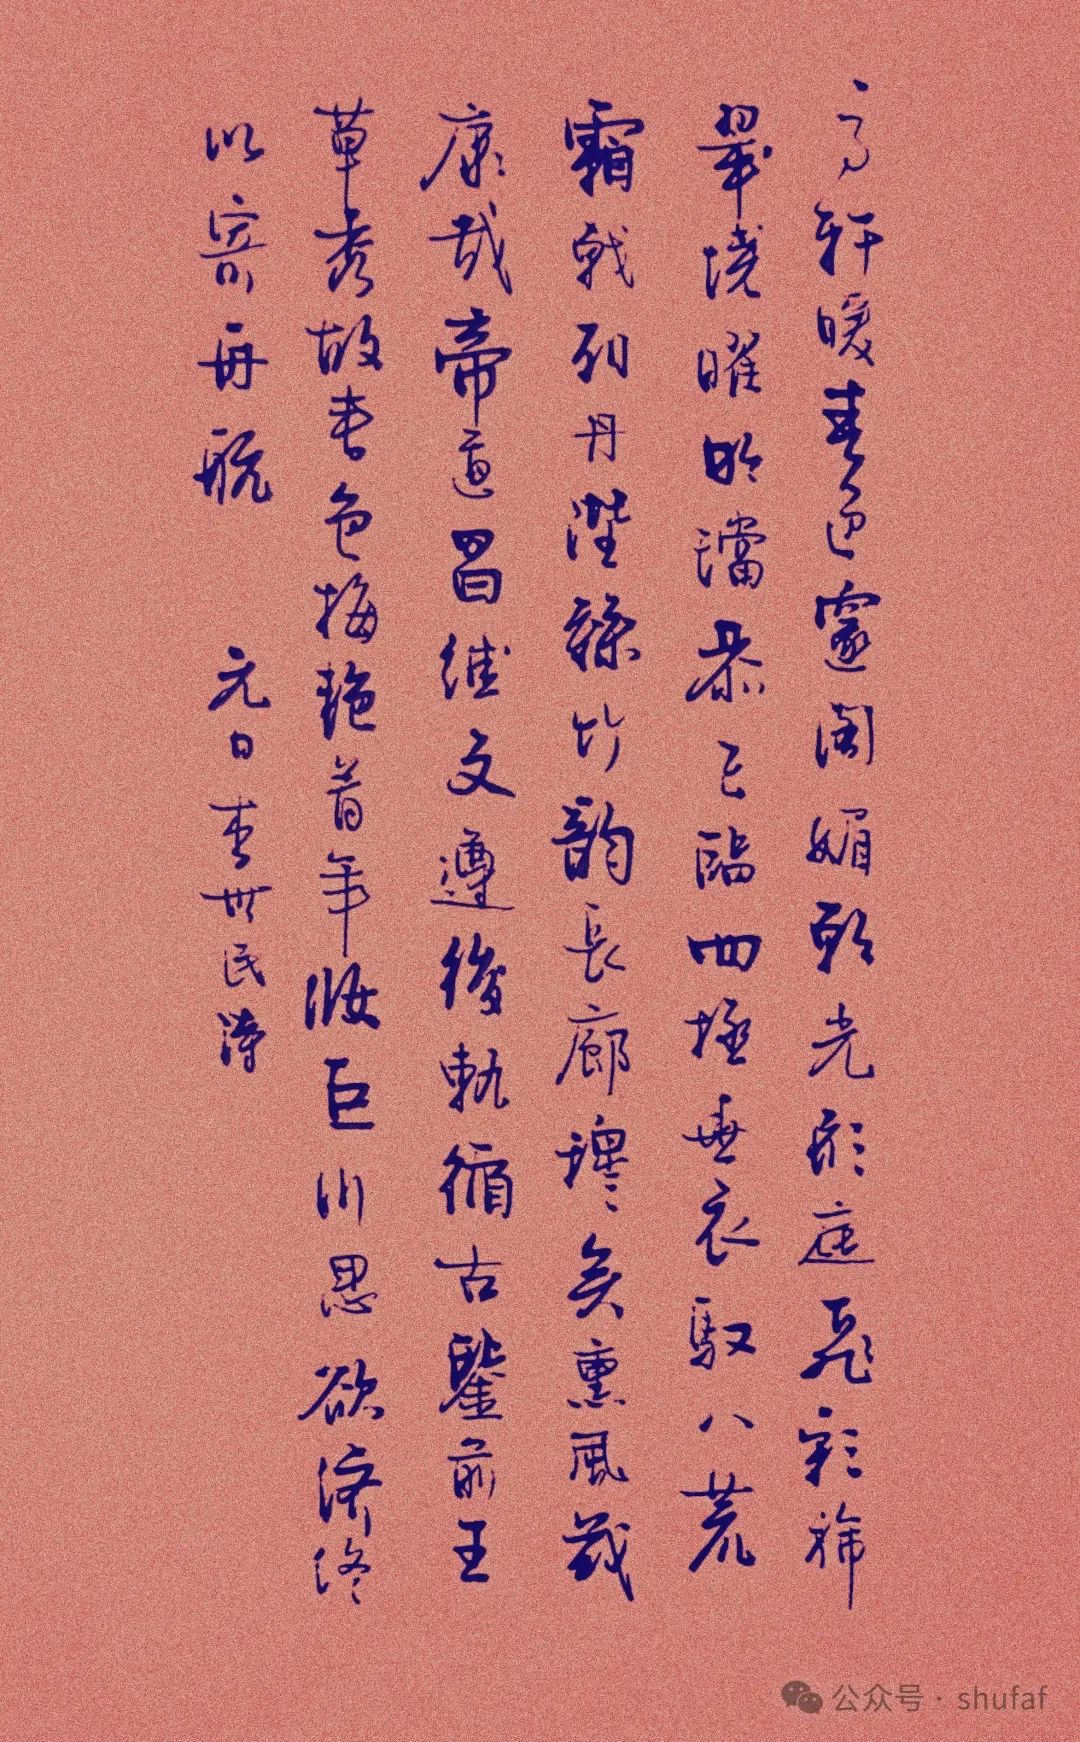 高軒暖春色邃閣媚朝光彤庭飛彩旆
翠幌曜明璫恭己臨四極垂衣馭八荒
霜戟列丹陛絲竹韵長廊穆矣熏風茂
康哉帝道昌继文遵後軌循古鑒前王
草秀故春色梅艷昔年妝巨川思欲济终
以寄舟航 元日李世民詩
公众号·shufaf